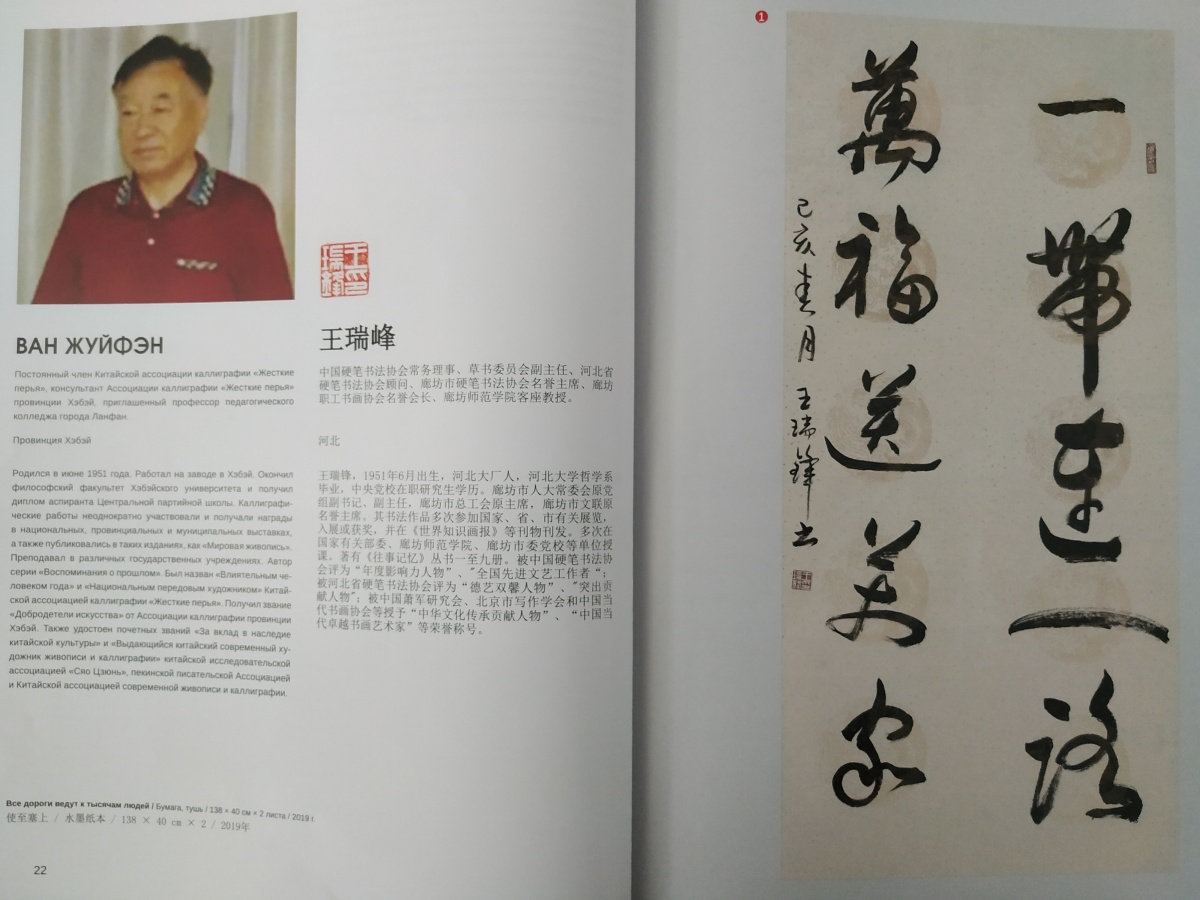 ВАН ЖУЙФЭН
Постоянный член Китайской ассоциации каллиграфии «Жесткие
перья», консультант Ассоциации каллиграфии «Жесткие перья»
провинции Хэбэй, приглашенный профессор педагогического
колледжа города Ланфан.
Провинция Хэбэй
Родился в июне 1951 года. Работал на заводе в Хэбэй. Окончил
философский факультет Хэбэйского университета и получил
диплом аспиранта Центральной партийной школы. Каллиграфи-
ческие работы неоднократно участвовали и получали награды
в национальных, провинциальных и муниципальных выставках,
а также публиковались в таких изданиях, как «Мировая живопись».
Преподавал в различных государственных учреждениях. Автор
серии «Воспоминания о прошлом». Был назван «Влиятельным че-
ловеком года» и «Национальным передовым художником» Китай-
ской ассоциацией каллиграфии «Жесткие перья». Получил звание
«Добродетели искусства» от Ассоциации каллиграфии провинции
Хэбэй. Также удостоен почетных званий «За вклад в наследие
китайской культуры» и «Выдающийся китайский современный ху-
дожник живописи и каллиграфии» китайской исследовательской
ассоциацией «Сяо Цзюнь», пекинской писательской Ассоциацией
и Китайской ассоциацией современной живописи и каллиграфии.
王瑞峰
中国硬笔书法协会常务理事、草书委员会副主任、河北省
硬笔书法协会顾问、廊坊市硬笔书法协会名誉主席、廊坊
职工书画协会名誉会长、廊坊师范学院客座教授。
河北
王瑞锋，1951年6月出生，河北大厂人，河北大学哲学系
毕业，中央党校在职研究生学历。廊坊市人大常委会原党
组副书记、副主任，廊坊市总工会原主席，廊坊市文联原
名誉主席。其书法作品多次参加国家、省、市有关展览，
入展或获奖，并在《世界知识画报》等刊物刊发。多次在
国家有关部委、廊坊师范学院、廊坊市委党校等单位授
课。著有《往事记忆》丛书一至九册。被中国硬笔书法协
会评为“年度影响力人物”、"全国先进文艺工作者“；
被河北省硬笔书法协会评为“德艺双馨人物”、"突出贡
献人物"；被中国萧军研究会、北京市写作学会和中国当
代书画协会等授予“中华文化传承贡献人物”、“中国当
代卓越书画艺术家”等荣誉称号。
Все дороги ведут к тысячам людей / Бумага, тушь / 138 × 40 см × 2 листа / 2019 г.
使至塞上 / 水墨纸本 / 138 × 40 cm × 2 / 2019年
22
1
一帶連一路
萬福送萬家
己亥春月 王瑞鋒书